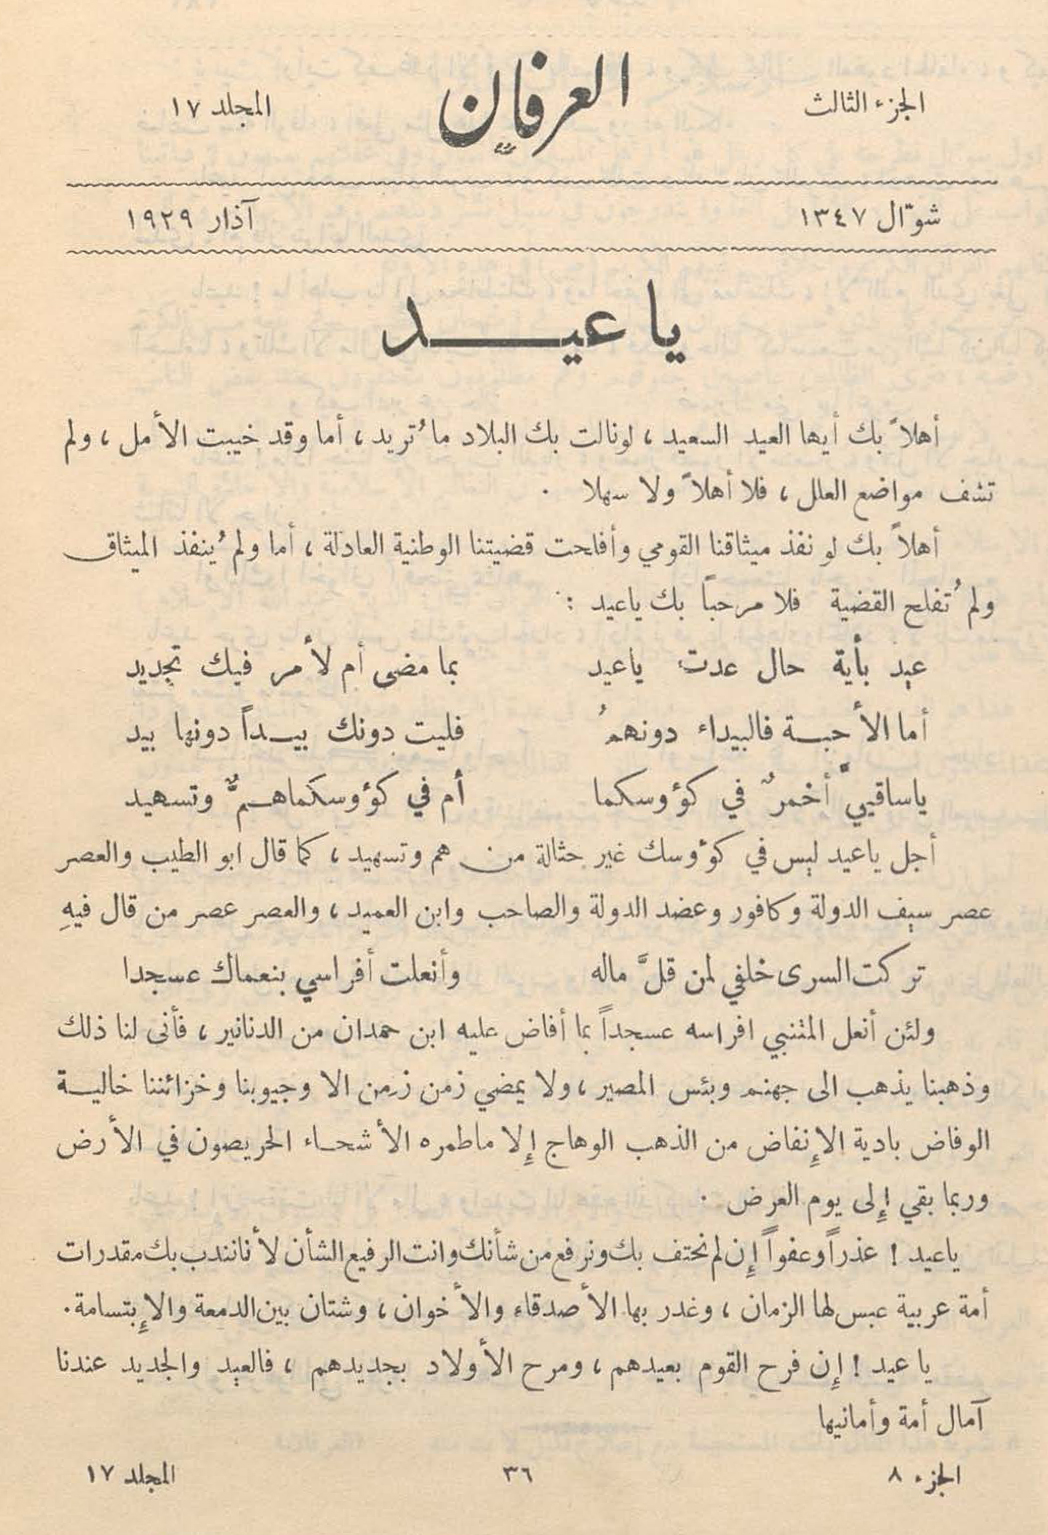 الجزء الثالث
العرفان
المجلد ١٧
شوّال ١٣٤٧
آذار ١٩٢٩
يا عيـــد
أهلاً بك أيها العيد السعيد ، لو نالت بك البلاد ما ُتريد ، أما وقد خيبت الأمل ، ولم
تشف مواضع العلل ، فلا أهلاً ولا سهلا .
أهلاً بك لو نفذ ميثاقنا القومي وأفلحت قضيتنا الوطنية العادلة ، أما ولم ُينفذ الميثاق
ولم ُتفلح القضية فلا مرحباً بك ياعيد :
عيد بأية حال عدت ياعيد بما مضى أم لأمر فيك تجديد
أما الأحبــة فالبيداء دونهمُ فليت دونك بيــداً دونها بيد
ياساقييَّ أخمرٌ في كؤوسكما أم في كؤوسكماهــمٌّ وتسهيد
أجل ياعيد ليس في كؤوسك غير حثالة من هم وتسهيد ، كما قال ابو الطيب والعصر
عصر سيف الدولة وكافور وعضد الدولة والصاحب وابن العميد ، والعصر عصر من قال فيهِ
تركت السرى خلفي لمن قلَّ ماله وأنعلت أفراسي بنعماك عسجدا
ولئن أنعل المتنبي افراسه عسجداً بما أفاض عليه ابن حمدان من الدنانير ، فأنى لنا ذلك
وذهبنا يذهب الى جهنم وبئس المصير ، ولا يمضي زمن زمن الا وجيوبنا وخزائننا خاليــة
الوفاض بادية الإنفاض من الذهب الوهاج إلا ماطمره الأشحــاء الحريصون في الأرض
وربما بقي إلى يوم العرض .
ياعيد ! عذراً وعفواً إن لم نحتف بك ونرفع من شأنك وانت الرفيع الشأن لأنا نندب بك مقدرات
أمة عربية عبس لها الزمان ، وغدر بها الأصدقاء والأخوان ، وشتان بين الدمعة والإبتسامة .
يا عيد ! إن فرح القوم بعيدهم ، ومرح الأولاد بجديدهم ، فالعيد والجديد عندنا
آمال أمة وأمانيها
الجزء ٨
٣٦
المجلد ١٧